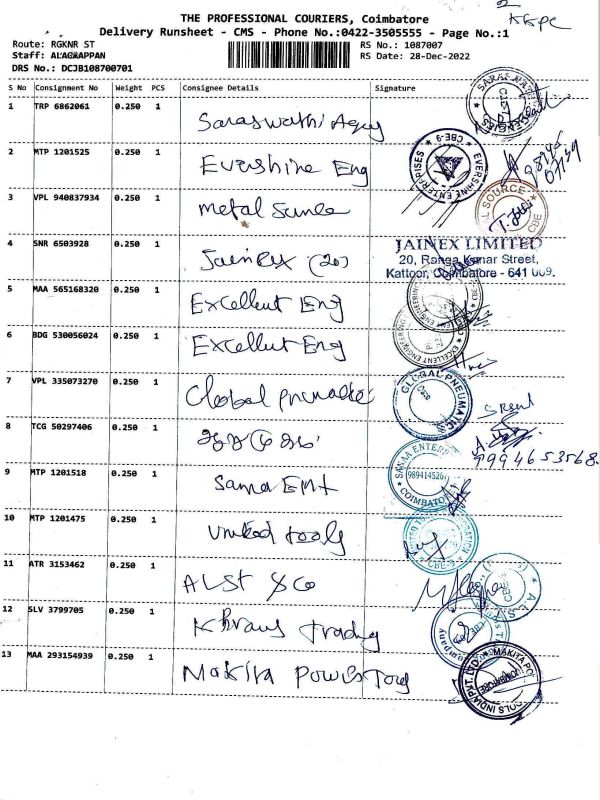 THE PROFESSIONAL COURIERS, Coimbatore
Delivery Runsheet - CMS - Phone No.:0422-3505555 - Page No.:1
Route: RGKNR ST
RS No.: 1087007
Staff: ALAGRAPPAN
RS Date: 28-Dec-2022
DRS No.: DCJB108700701
S No Consignment No Weight PCS Consignee Details Signature
1 TRP 6862061 0.250 1 Saraswathi Agcy
2 MTP 1201525 0.250 1 Evershine Eng
EVERSHINE ENTERPRISES * CBE-9 *
3 VPL 940837934 0.250 1 metal
4 SNR 6503928 0.250 1 Jainex (20)
JAINEX LIMITED
20, Ranga Konar Street,
Kattoor, Coimbatore - 641 009.
5 MAA 565168320 0.250 1 Excellent Eng
6 BDG 530056024 0.250 1 Excellent Eng
7 VPL 335073270 0.250 1 Global
GLOBAL PNEUMATICS
8 TCG 50297406 0.250 1
9994653568.
9 MTP 1201518 0.250 1 Sama Ent
COIMBATORE
10 MTP 1201475 0.250 1 United tools
11 ATR 3153462 0.250 1 ALST & Co
12 SLV 3799705 0.250 1 Trading
13 MAA 293154939 0.250 1 Makita Power Tools